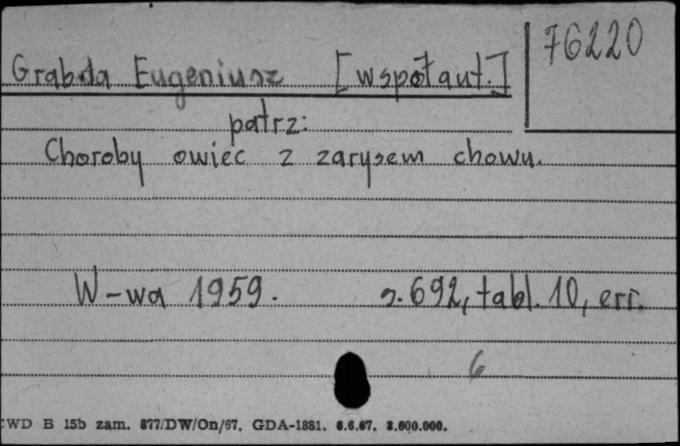 76220
Grabda Eugeniusz [współaut.]
patrz:
Choroby owiec z zarysem chowu.
W-wa 1959. s. 692, tabl. 10, err.
6
CWD B 15b zam. 877/DW/On/67. GDA-1881. 6.6.67. 3.600.000.